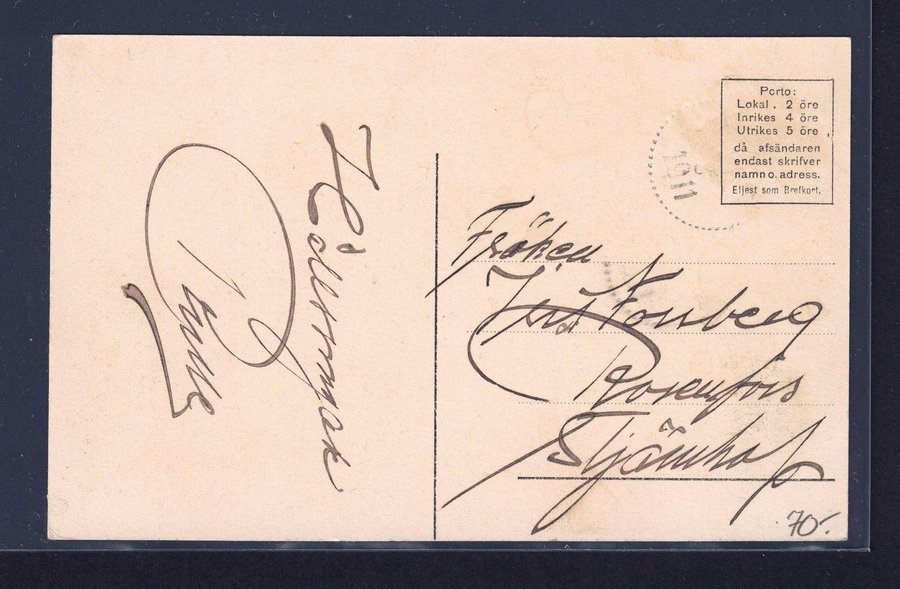 Porto:
Lokal . 2 öre
Inrikes 4 öre
Utrikes 5 öre
då afsändaren
endast skrifver
namn o. adress.
Eljest som Brefkort.
1911
Fröken
Forsberg
Rosenfors
Stjärnhof
70:-